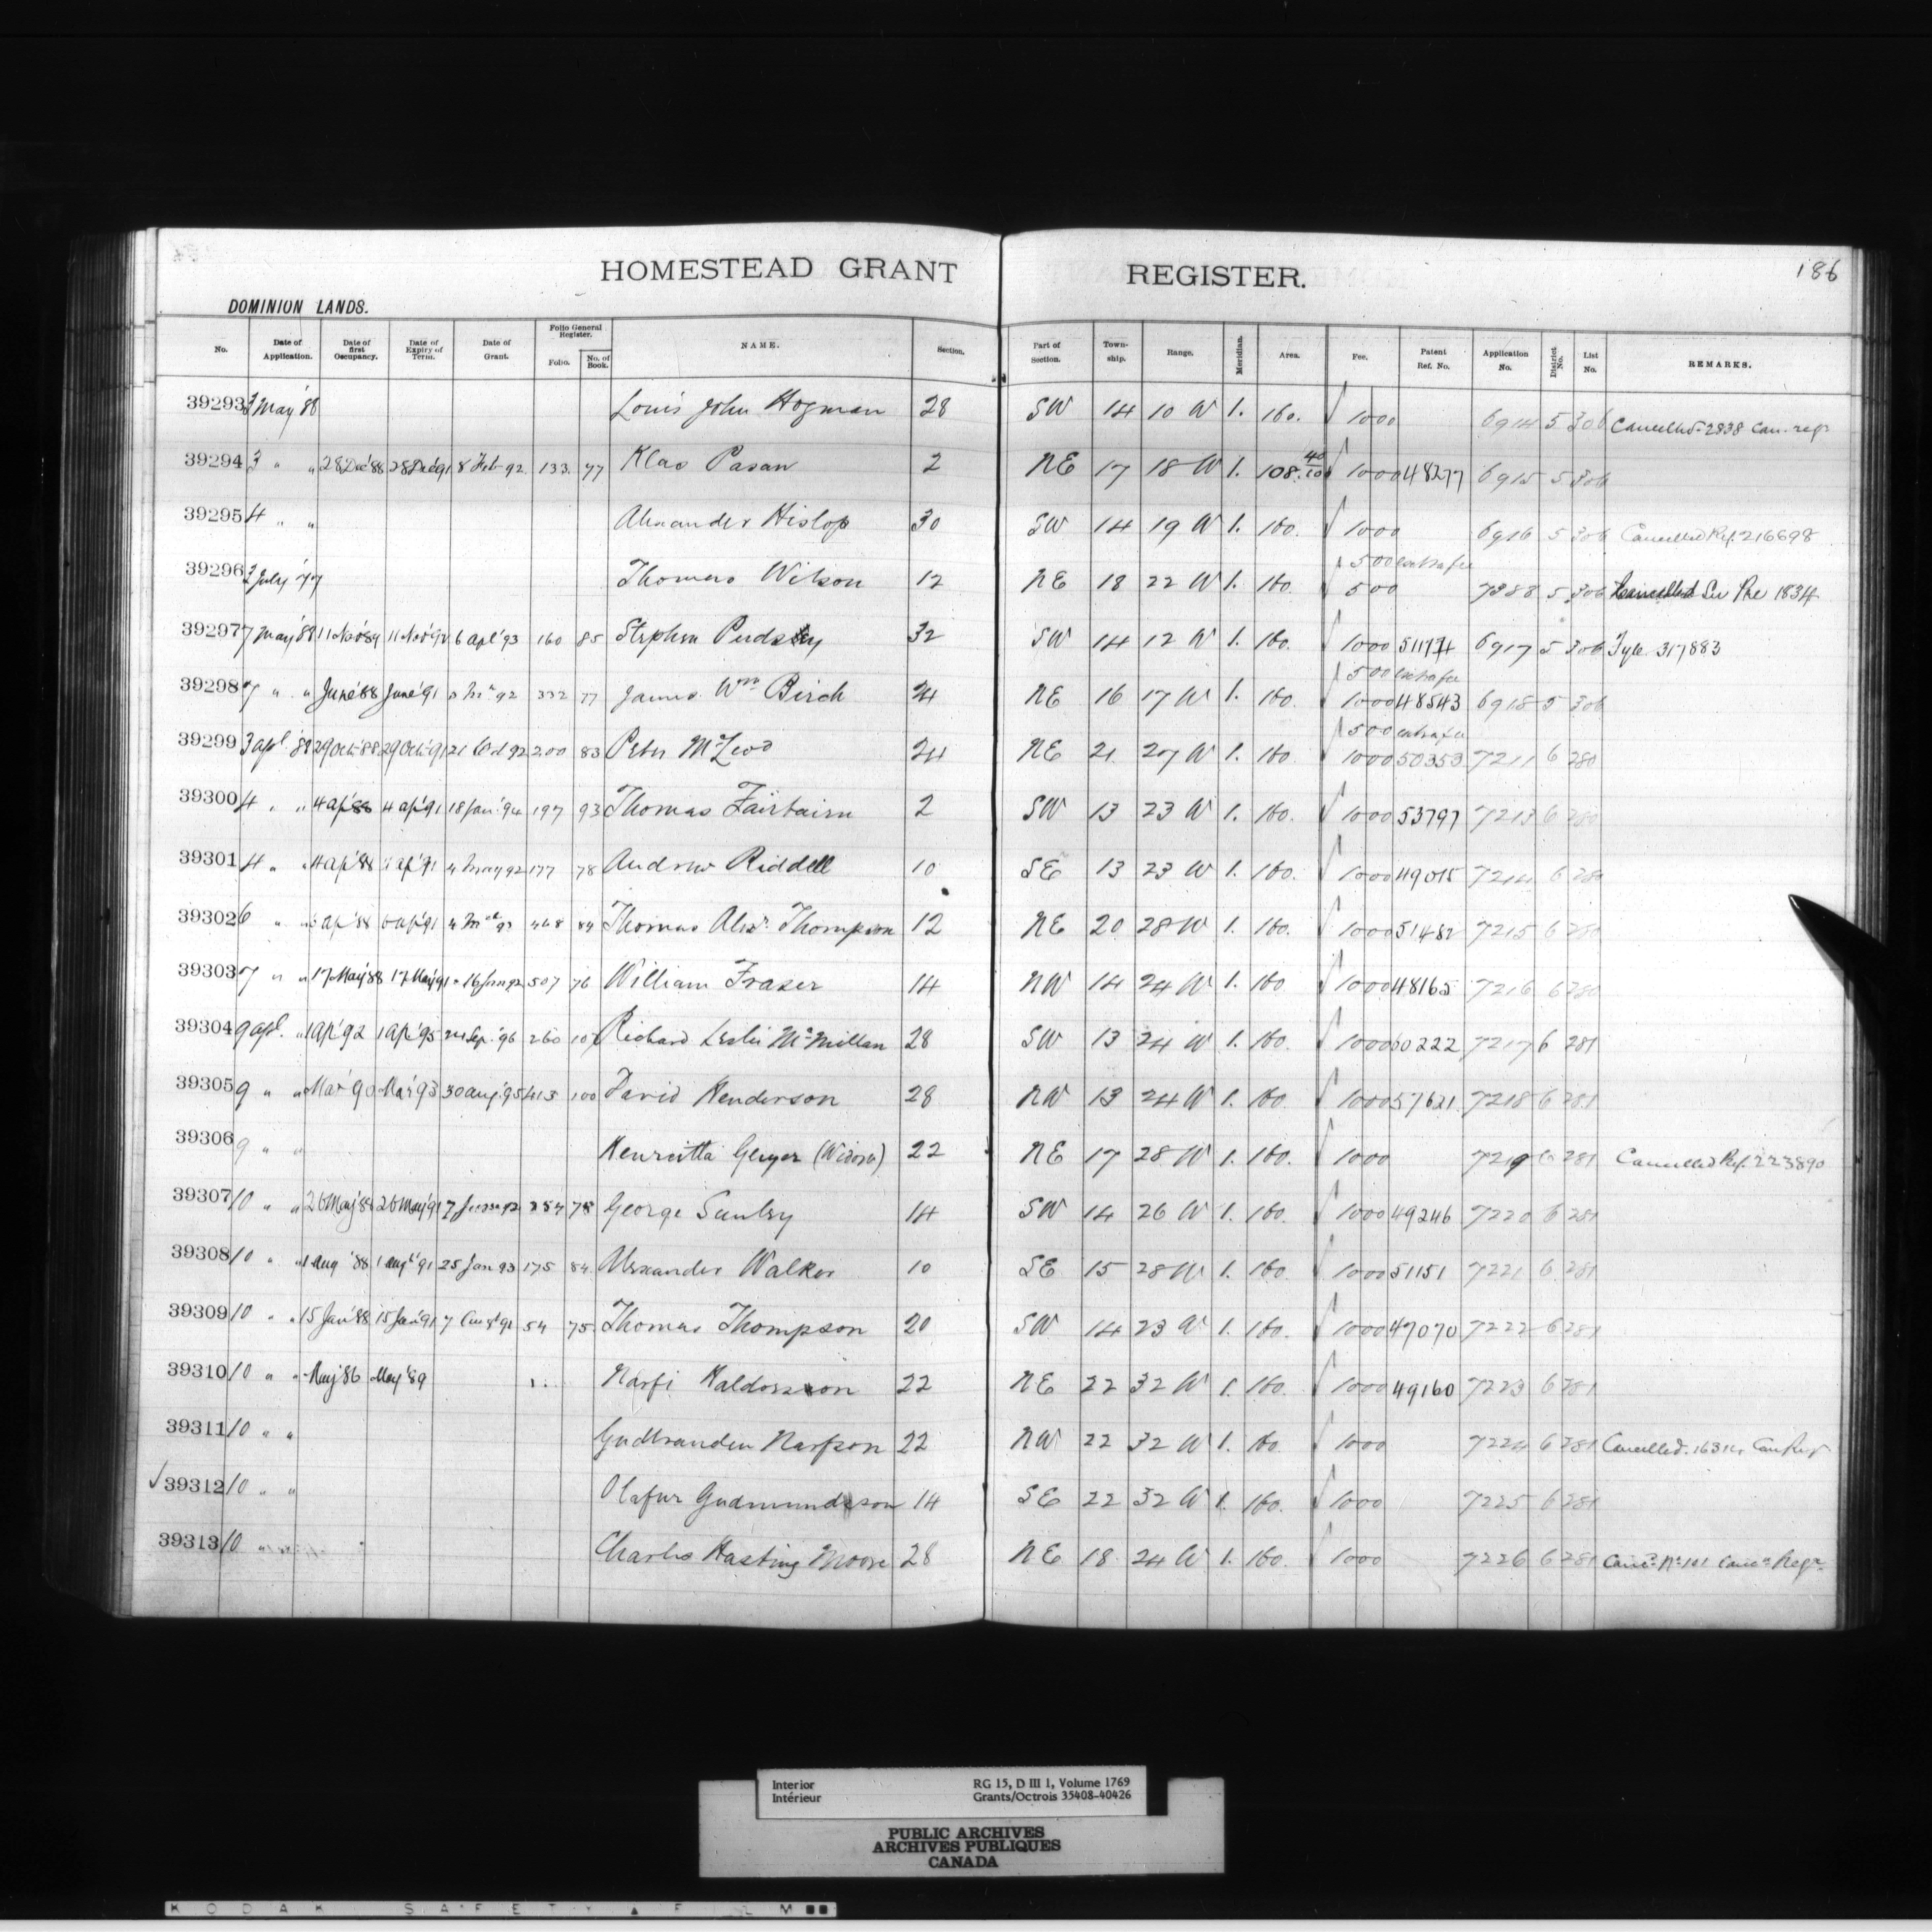 HOMESTEAD GRANT REGISTER. 186
DOMINION LANDS.
No. Date of Application. Date of first Occupancy. Date of Expiry of Term. Date of Grant. Folio General Register. Folio. No. of Book. NAME. Section. Part of Section. Town-ship. Range. Meridian. Area. Fee. Patent Ref. No. Application No. District No. List No. REMARKS.
39293 3 May '88 Louis John Hogman 28 SW 14 10 W 1. 160. 1000 6914 5 306 Cancelled 2838 Can. regr
39294 3 " " 28 Dec '88 28 Dec '91 8 Feb 92. 133. 77 Klas Pasan 2 NE 17 18 W 1. 108. 40/100 1000 48277 6915 5 306
39295 4 " " Alexander Hislop 30 SW 14 19 W 1. 160. 1000 6916 5 306 Cancelled Ref. 216698
39296 2 July '77 Thomas Wilson 12 NE 18 22 W 1. 160. 500 extra fee 500 7388 5 306 Cancelled See Pre 1834
39297 7 May '88 11 Nov '89 11 Nov '92 6 Apl '93 160 85 Stephen Pudsey 32 SW 14 12 W 1. 160. 1000 51174 6917 5 306 Fyle 317883
39298 7 " " June '88 June '91 92 332 77 James Wm Birch 24 NE 16 17 W 1. 160. 500 extra fee 1000 48543 6918 5 306
39299 3 Apl '88 29 Oct '88 29 Oct '91 21 Oct 92 200 83 Peter McLeod 24 NE 21 27 W 1. 160. 500 extra fee 1000 50353 7211 6 280
39300 4 " " 4 Ap '88 4 Ap '91 18 Jan '94 197 93 Thomas Fairbairn 2 SW 13 23 W 1. 160. 1000 53797 7213 6 280
39301 4 " " 4 Ap '88 4 Ap '91 4 May 92 177 78 Andrew Riddell 10 SE 13 23 W 1. 160. 1000 49015 7214 6 280
39302 6 " " 6 Ap '88 6 Ap '91 468 84 Thomas Alexr Thompson 12 NE 20 28 W 1. 160. 1000 51482 7215 6 280
39303 7 " " 17 May '88 17 May '91 16 Jan 92 507 76 William Fraser 14 NW 14 24 W 1. 160 1000 48165 7216 6 280
39304 9 Apl. " 1 Ap '92 1 Ap '95 Sep. '96 260 107 Richard Leslie McMillan 28 SW 13 24 W 1. 160. 1000 60222 7217 6 281
39305 9 " " Mar '90 Mar '93 30 Aug. '95 413 100 David Henderson 28 NW 13 24 W 1. 160 1000 57621 7218 6 281
39306 9 " " Henrietta Geyer (Widow) 22 NE 17 28 W 1. 160. 1000 7219 6 281 Cancelled Ref. 223890
39307 10 " " 26 May '88 26 May '91 7 June 92 354 78 George Sunley 14 SW 14 26 W 1. 160. 1000 49246 7220 6 281
39308 10 " " 1 Aug '88 1 Augt '91 25 Jan 93 175 84 Alexander Walker 10 SE 15 28 W 1. 160. 1000 51151 7221 6 281
39309 10 " " 15 Jan '88 15 Jan '91 7 54 75 Thomas Thompson 20 SW 14 23 W 1. 160. 1000 47070 7222 6 281
39310 10 " " May '86 May '89 Narfi Haldorson 22 NE 22 32 W 1. 160. 1000 49160 7223 6 281
39311 10 " " Gudbranden Narfson 22 NW 22 32 W 1. 160. 1000 7224 6 281 Cancelled. Can Regr
√ 39312 10 " " Olafur Gudmundsson 14 SE 22 32 W 1. 160. 1000 7225 6 281
39313 10 " Charles Hasting Moore 28 NE 18 24 W 1. 160. 1000 7226 6 281 Canc. No 101 Cancn Regr
Interior RG 15, D III 1, Volume 1769
Intérieur Grants/Octrois 35408-40426
PUBLIC ARCHIVES
ARCHIVES PUBLIQUES
CANADA
KODAK SAFETY ▲ F